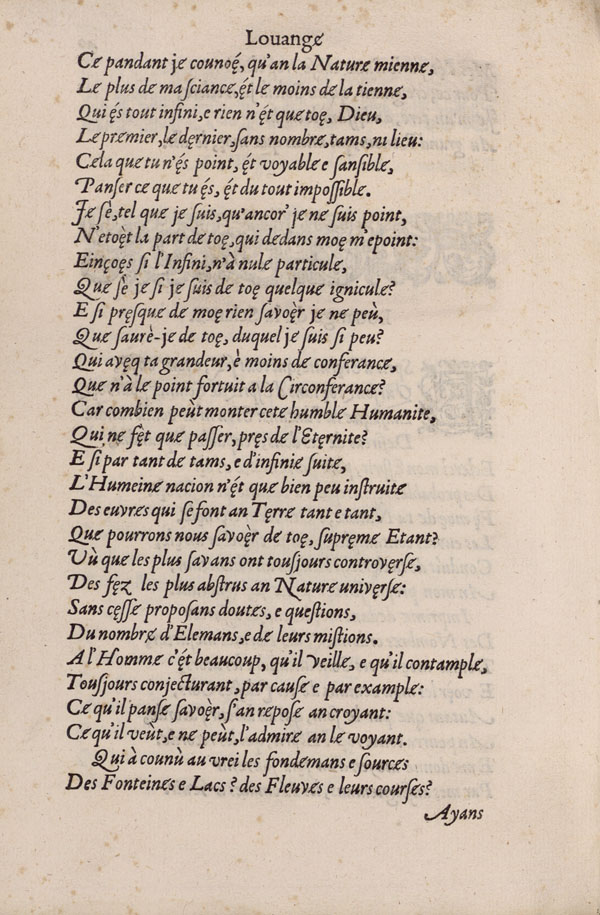 Louange
Ce pandant je counoę́, qu'an la Nature mienne,
Le plus de ma sciance, ę́t le moins de la tienne,
Qui ę́s tout infini, e rien n'ę́t que toę, Dieu,
Le premier, le dęrnier, sans nombre, tams, ni lieu:
Cela que tu n'ę́s point, ę́t voyable e sansible,
Panser ce que tu ę́s, ę́t du tout impossible.
Je sè, tel que je suis, qu'ancor' je ne suis point,
N'etoę̀t la part de toę, qui dedans moę m'epoint:
Einçoęs si l'Infini, n'à nule particule,
Que sè je si je suis de toę quelque ignicule?
E si pręsque de moę rien savoęr je ne peù,
Que saurè-je de toę, duquel je suis si peu?
Qui avęq ta grandeur, è moins de conferance,
Que n'à le point fortuit a la Circonferance?
Car combien peùt monter cete humble Humanite,
Qui ne fę̀t que passer, pręs de l'Etęrnite?
E si par tant de tams, e d'infinie suite,
L'Humeine nacion n'ę́t que bien peu instruite
Des euvres qui se font an Tęrre tant e tant,
Que pourrons nous savoęr de toę, supręme Etant?
Vù que les plus savans ont tousjours controvęrse,
Des fęz les plus abstrus an Nature univęrse:
Sans cęsse proposans doutes, e questions,
Du nombre d'Elemans, e de leurs mistions.
A l'Homme c'ę́t beaucoup, qu'il veille, e qu'il contample,
Tousjours conjecturant, par cause e par example:
Ce qu'il panse savoęr, s'an repose an croyant:
Ce qu'il veùt, e ne peùt, l'admire an le voyant.
Qui à counù au vrei les fondemans e sources
Des Fonteines e Lacs? des Fleuves e leurs courses?
Ayans